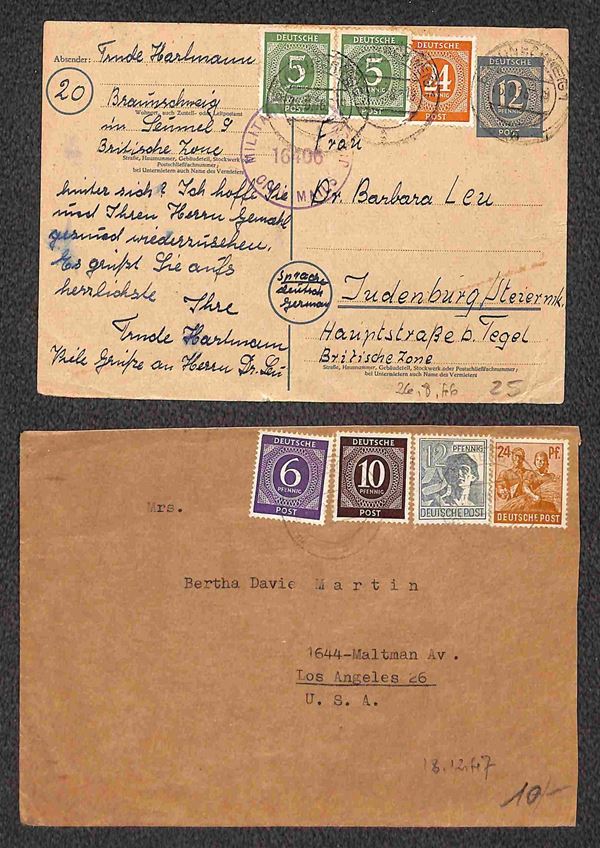 Absender: Trude Hartmann
20
Braunschweig
Wohnort, auch Zustell- oder Leitpostamt
Straße, Hausnummer, Gebäudeteil, Stockwerk oder
Postschließfachnummer;
bei Untermietern auch Name des Vermieters
Britische Zone
hinter sich? Ich hoffe Sie
und Ihren Herrn Gemahl
gesund wiederzusehen.
Es grüßt Sie aufs
herzlichste
Ihre
Trude Hartmann
Viele Grüße an Herrn Dr. Leu
DEUTSCHE
5
PFENNIG
POST
DEUTSCHE
5
PFENNIG
POST
DEUTSCHE
24
PFENNIG
POST
DEUTSCHE
12
PFENNIG
POST
16406
Frau
Dr. Barbara Leu
Sprache
deutsch
German
Judenburg/Steiermk.
Hauptstraße b. Tegel
Britische Zone
Straße, Hausnummer, Gebäudeteil, Stockwerk oder Postschließfachnummer;
bei Untermietern auch Name des Vermieters
26.8.46
25
DEUTSCHE
6
PFENNIG
POST
DEUTSCHE
10
PFENNIG
POST
12 PFENNIG
DEUTSCHE POST
24 PF.
DEUTSCHE POST
Mrs.
Bertha Davie Martin
1644-Maltman Av.
Los Angeles 26
U. S. A.
18.12.47
10/-